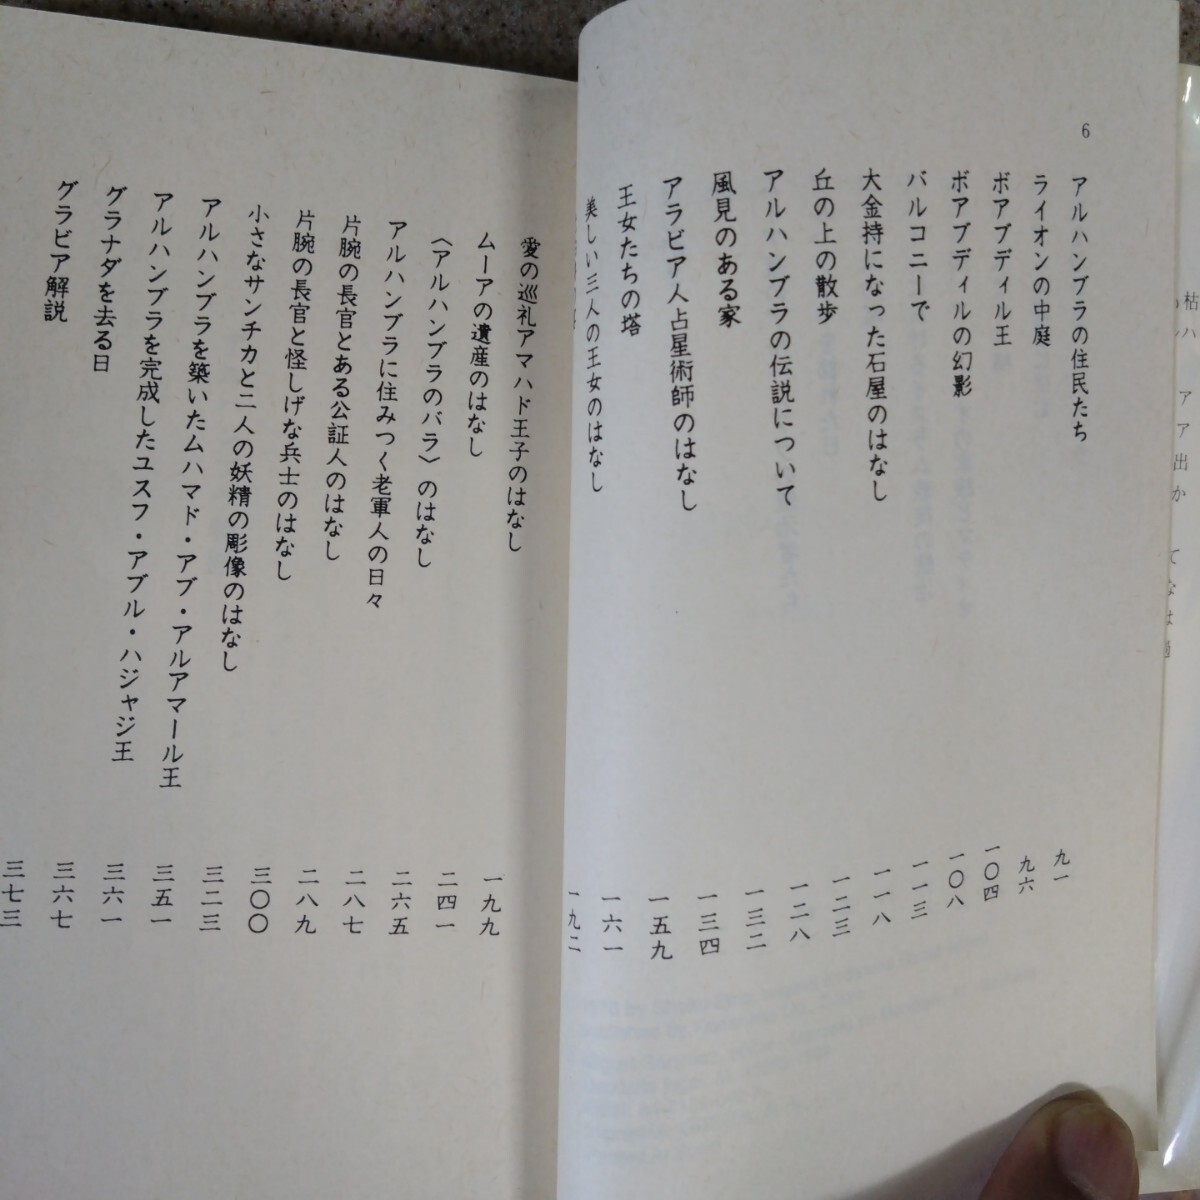 6
アルハンブラの住民たち 九一
ライオンの中庭 九六
ボアブディル王 一〇四
ボアブディルの幻影 一〇八
バルコニーで 一一三
大金持になった石屋のはなし 一一八
丘の上の散歩 一二三
アルハンブラの伝説について 一二八
風見のある家 一三二
アラビア人占星術師のはなし 一三四
王女たちの塔 一五九
美しい三人の王女のはなし 一六一
一九二
愛の巡礼アマハド王子のはなし 一九九
ムーアの遺産のはなし 二四一
〈アルハンブラのバラ〉のはなし 二六五
アルハンブラに住みつく老軍人の日々 二八七
片腕の長官とある公証人のはなし 二八九
片腕の長官と怪しげな兵士のはなし 三〇〇
小さなサンチカと二人の妖精の彫像のはなし 三二三
アルハンブラを築いたムハマド・アブ・アルアマール王 三五一
アルハンブラを完成したユスフ・アブル・ハジャジ王 三六一
グラナダを去る日 三六七
グラビア解説 三七三